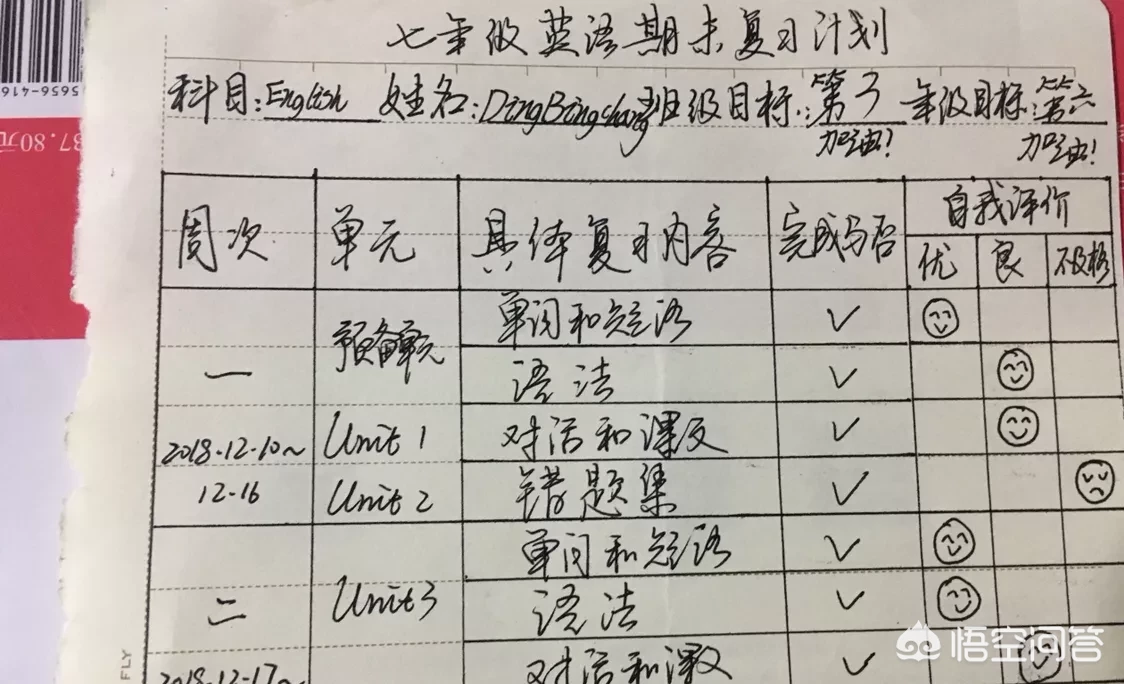 七年级英语期末复习计划
科目:English 姓名:DingBingchang 班级目标:第3 年级目标:第六
加油! 加油!
周次 单元 具体复习内容 完成与否 自我评价
优 良 不及格
预备单元 单词和短语 ✓
一 语法 ✓
2018.12.10~ Unit 1 对话和课文 ✓
12-16 Unit 2 错题集 ✓
单词和短语 ✓
二 Unit 3 语法 ✓
2018.12.17~ 对话和课文 ✓
悟空问答
FLY
5656-416
37.80元